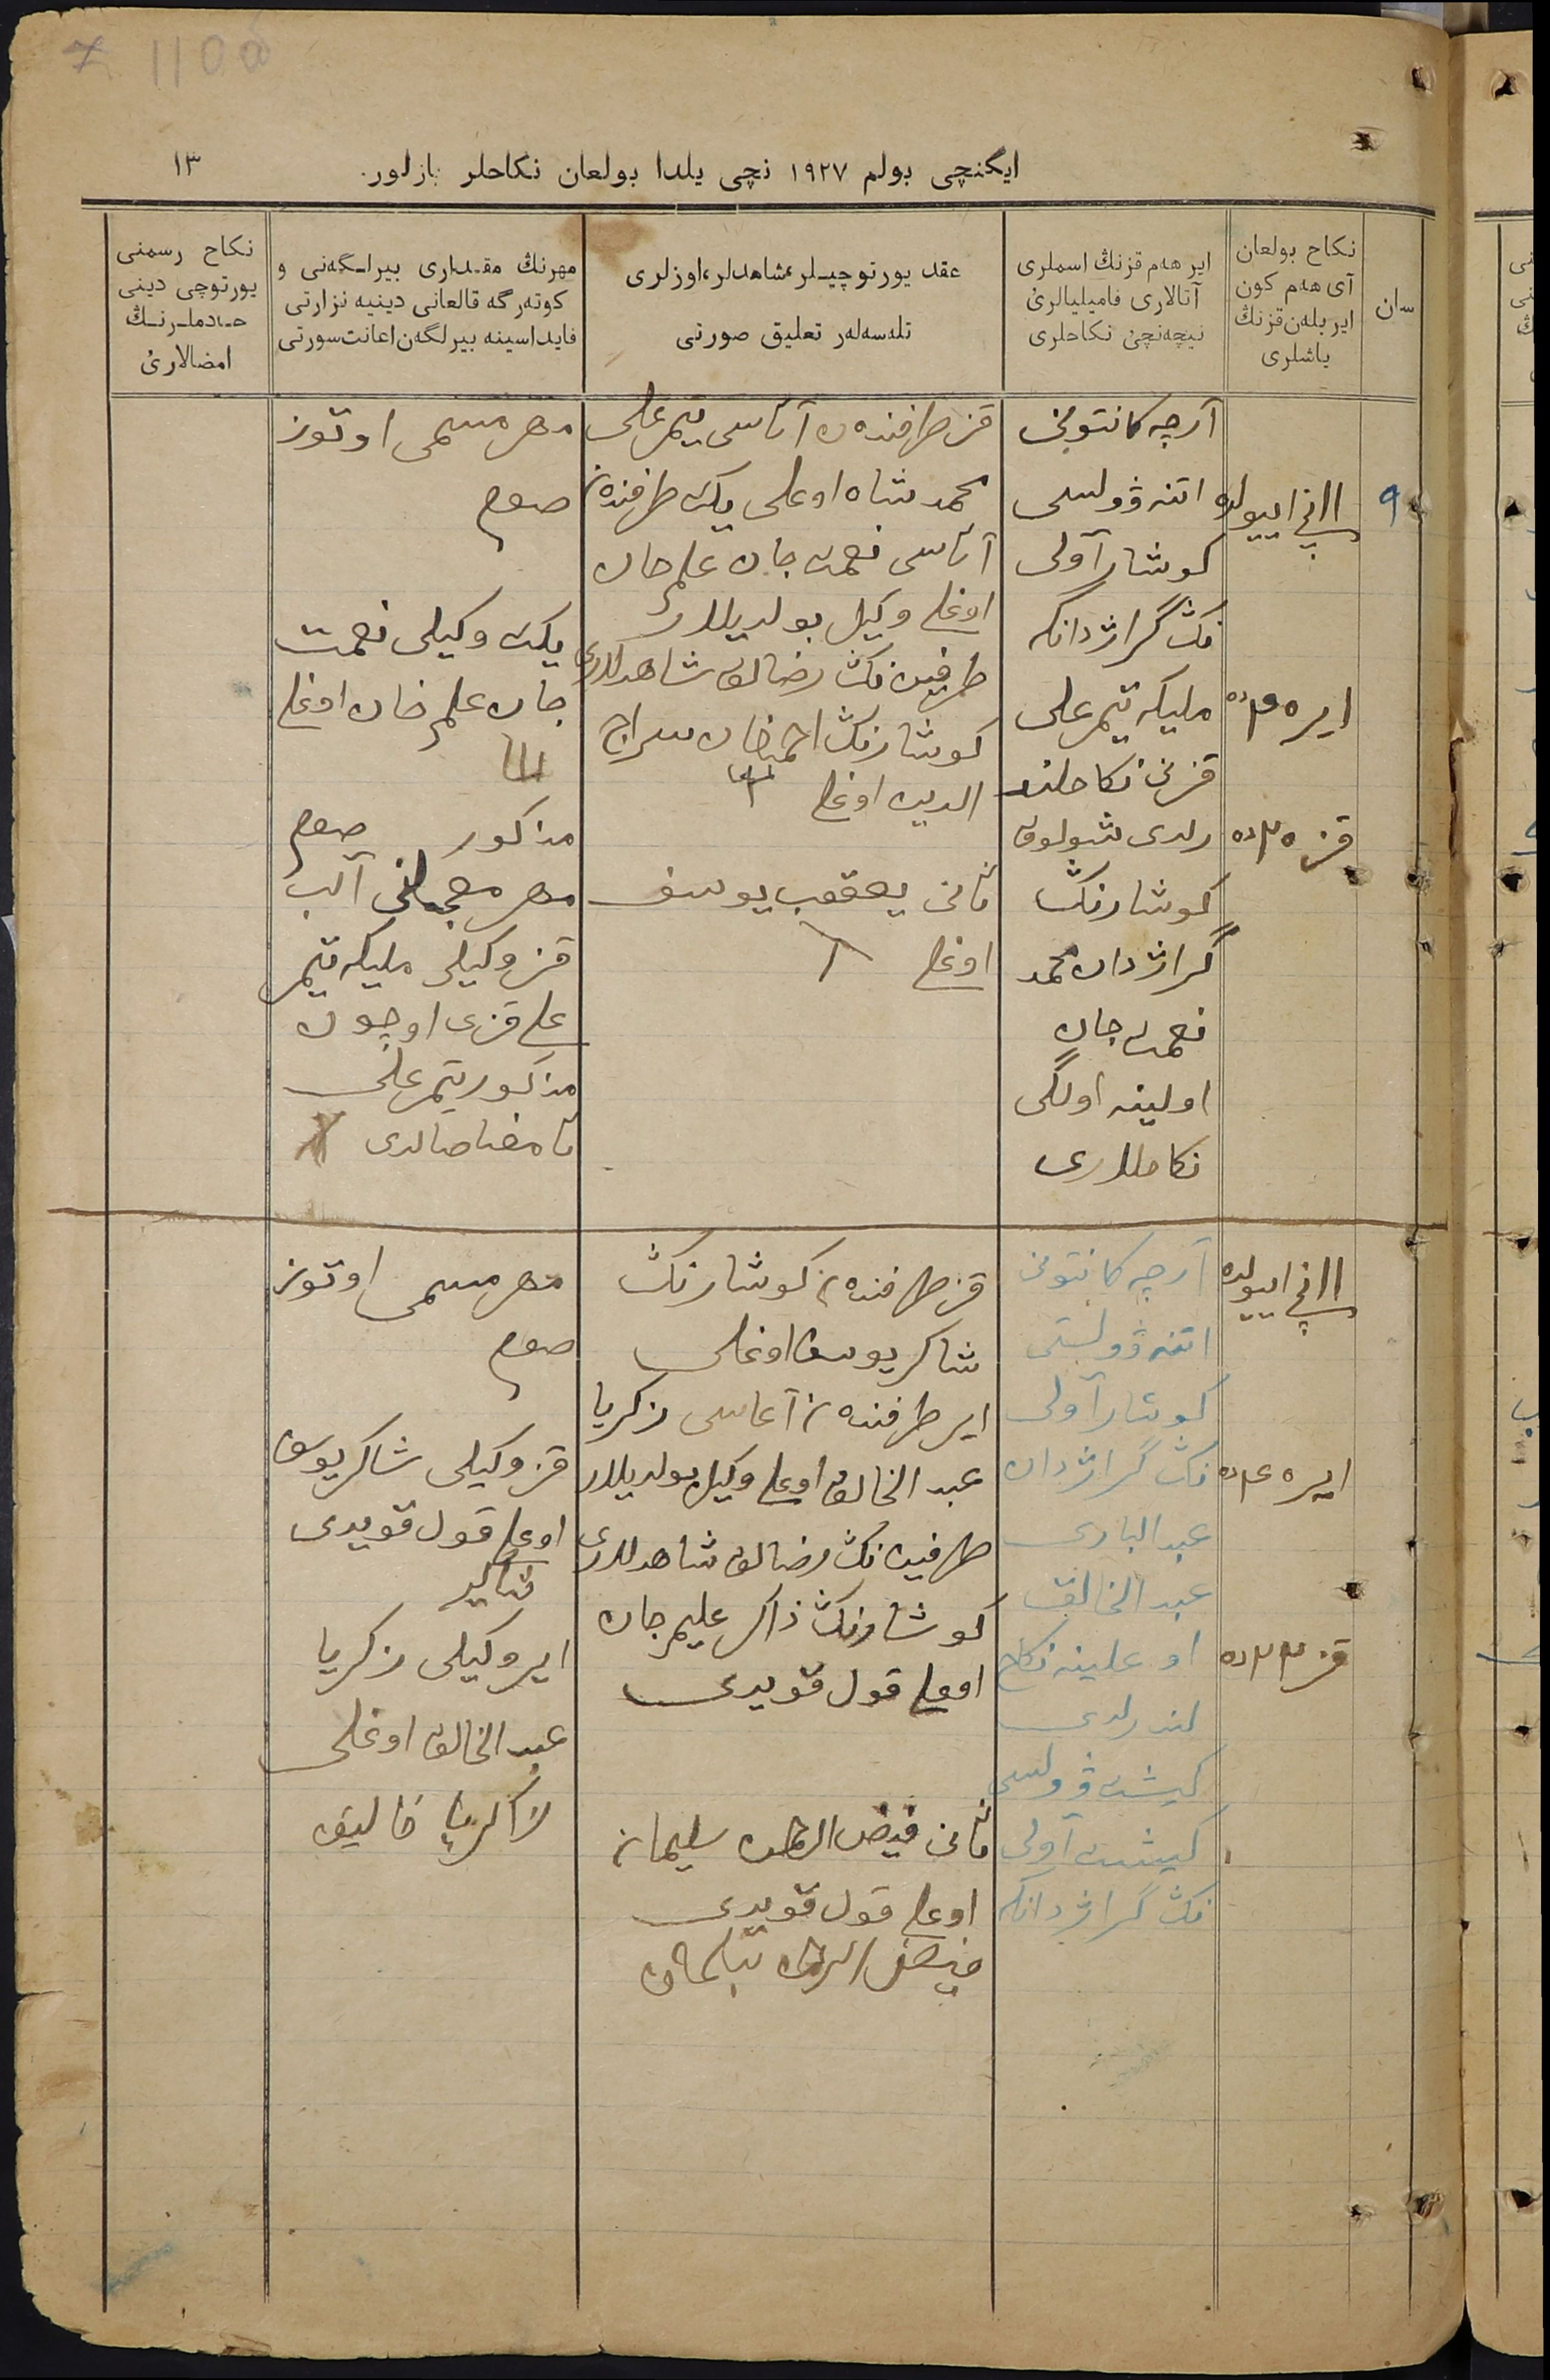 ايگنچی بولم ١٩٢٧ نچی يلدا بولعان نكاحلر يازلور.
١٣
سان
نكاح بولعان
آی هەم كون
اير بلەن قزنڭ
ياشلری
اير هەم قزنڭ اسملری
آتالاری فاميليالری
نيچەنچی نكاحلری
عقد يورتوچيلر، شاهدلر، اوزلری
تلەسەلەر تعليق صورتی
مهرنڭ مقداری بيرلگەنی و
كوتەرگە قالعانی دينيە نزارتی
فايداسينه بيرلگەن اعانت سورتی
نكاح رسمنی
يورتوچی دينی
خادملرنڭ
امضالاری
٩
١١نچی اييولده
قز ٢٠ ده
آرچه كانتونی
اتنه ڤولسی
كوشار آولی
نڭ گراژدانكه
مليكه تيمرعلی
قزی نكاحلند
رلدی شولوق
كوشارنڭ
گراژدان محمد
نعمت جان
اولينه اولگی
نكاحلاری
قز طرفندن آتاسی تيمرعلی
محمدشاه اوغلی يكت طرفندن
آتاسی نعمت جان علم جان
اوغلی وكيل بولديلار
طرفين نڭ رضالق شاهدلاری
كوشارنڭ احمدجان سراج
الدين اوغلی
ثانی يعقوب يوسف
اوغلی
مهر مسمی اوتوز
صوم
يكت وكيلی نعمت
جان علم جان اوغلی
مذكور صوم
مهر معجلنی آلب
قز وكيلی مليكه تيمر
علی قزی اوچون
مذكور تيمرعلی
تامغا صالدی
١١نچی اييولده
اير ٢٤ ده
قز ٢٣ ده
آرچه كانتونی
اتنه ڤولستی
كوشار آولی
نڭ گراژدان
عبدالباری
عبدالخالق
اوغلينه نكاح
لندرلدی
كيشت ڤولسی
كيشت آولی
نڭ گراژدانكه
قز طرفندن كوشارنڭ
شاكر يوسف اوغلی
اير طرفندن آغاسی زكريا
عبدالخالق اوغلی وكيل بولديلار
طرفين نڭ رضالق شاهدلاری
كوشارنڭ ذاكر عليم جان
اوغلی قول قويدی
ثانی فيض الرحمن سليمان
اوغلی قول قويدی
مهر مسمی اوتوز
صوم
قز وكيلی شاكر يوسف
اوغلی قول قويدی
شاكر
اير وكيلی زكريا
عبدالخالق اوغلی
زاكريا خاليق